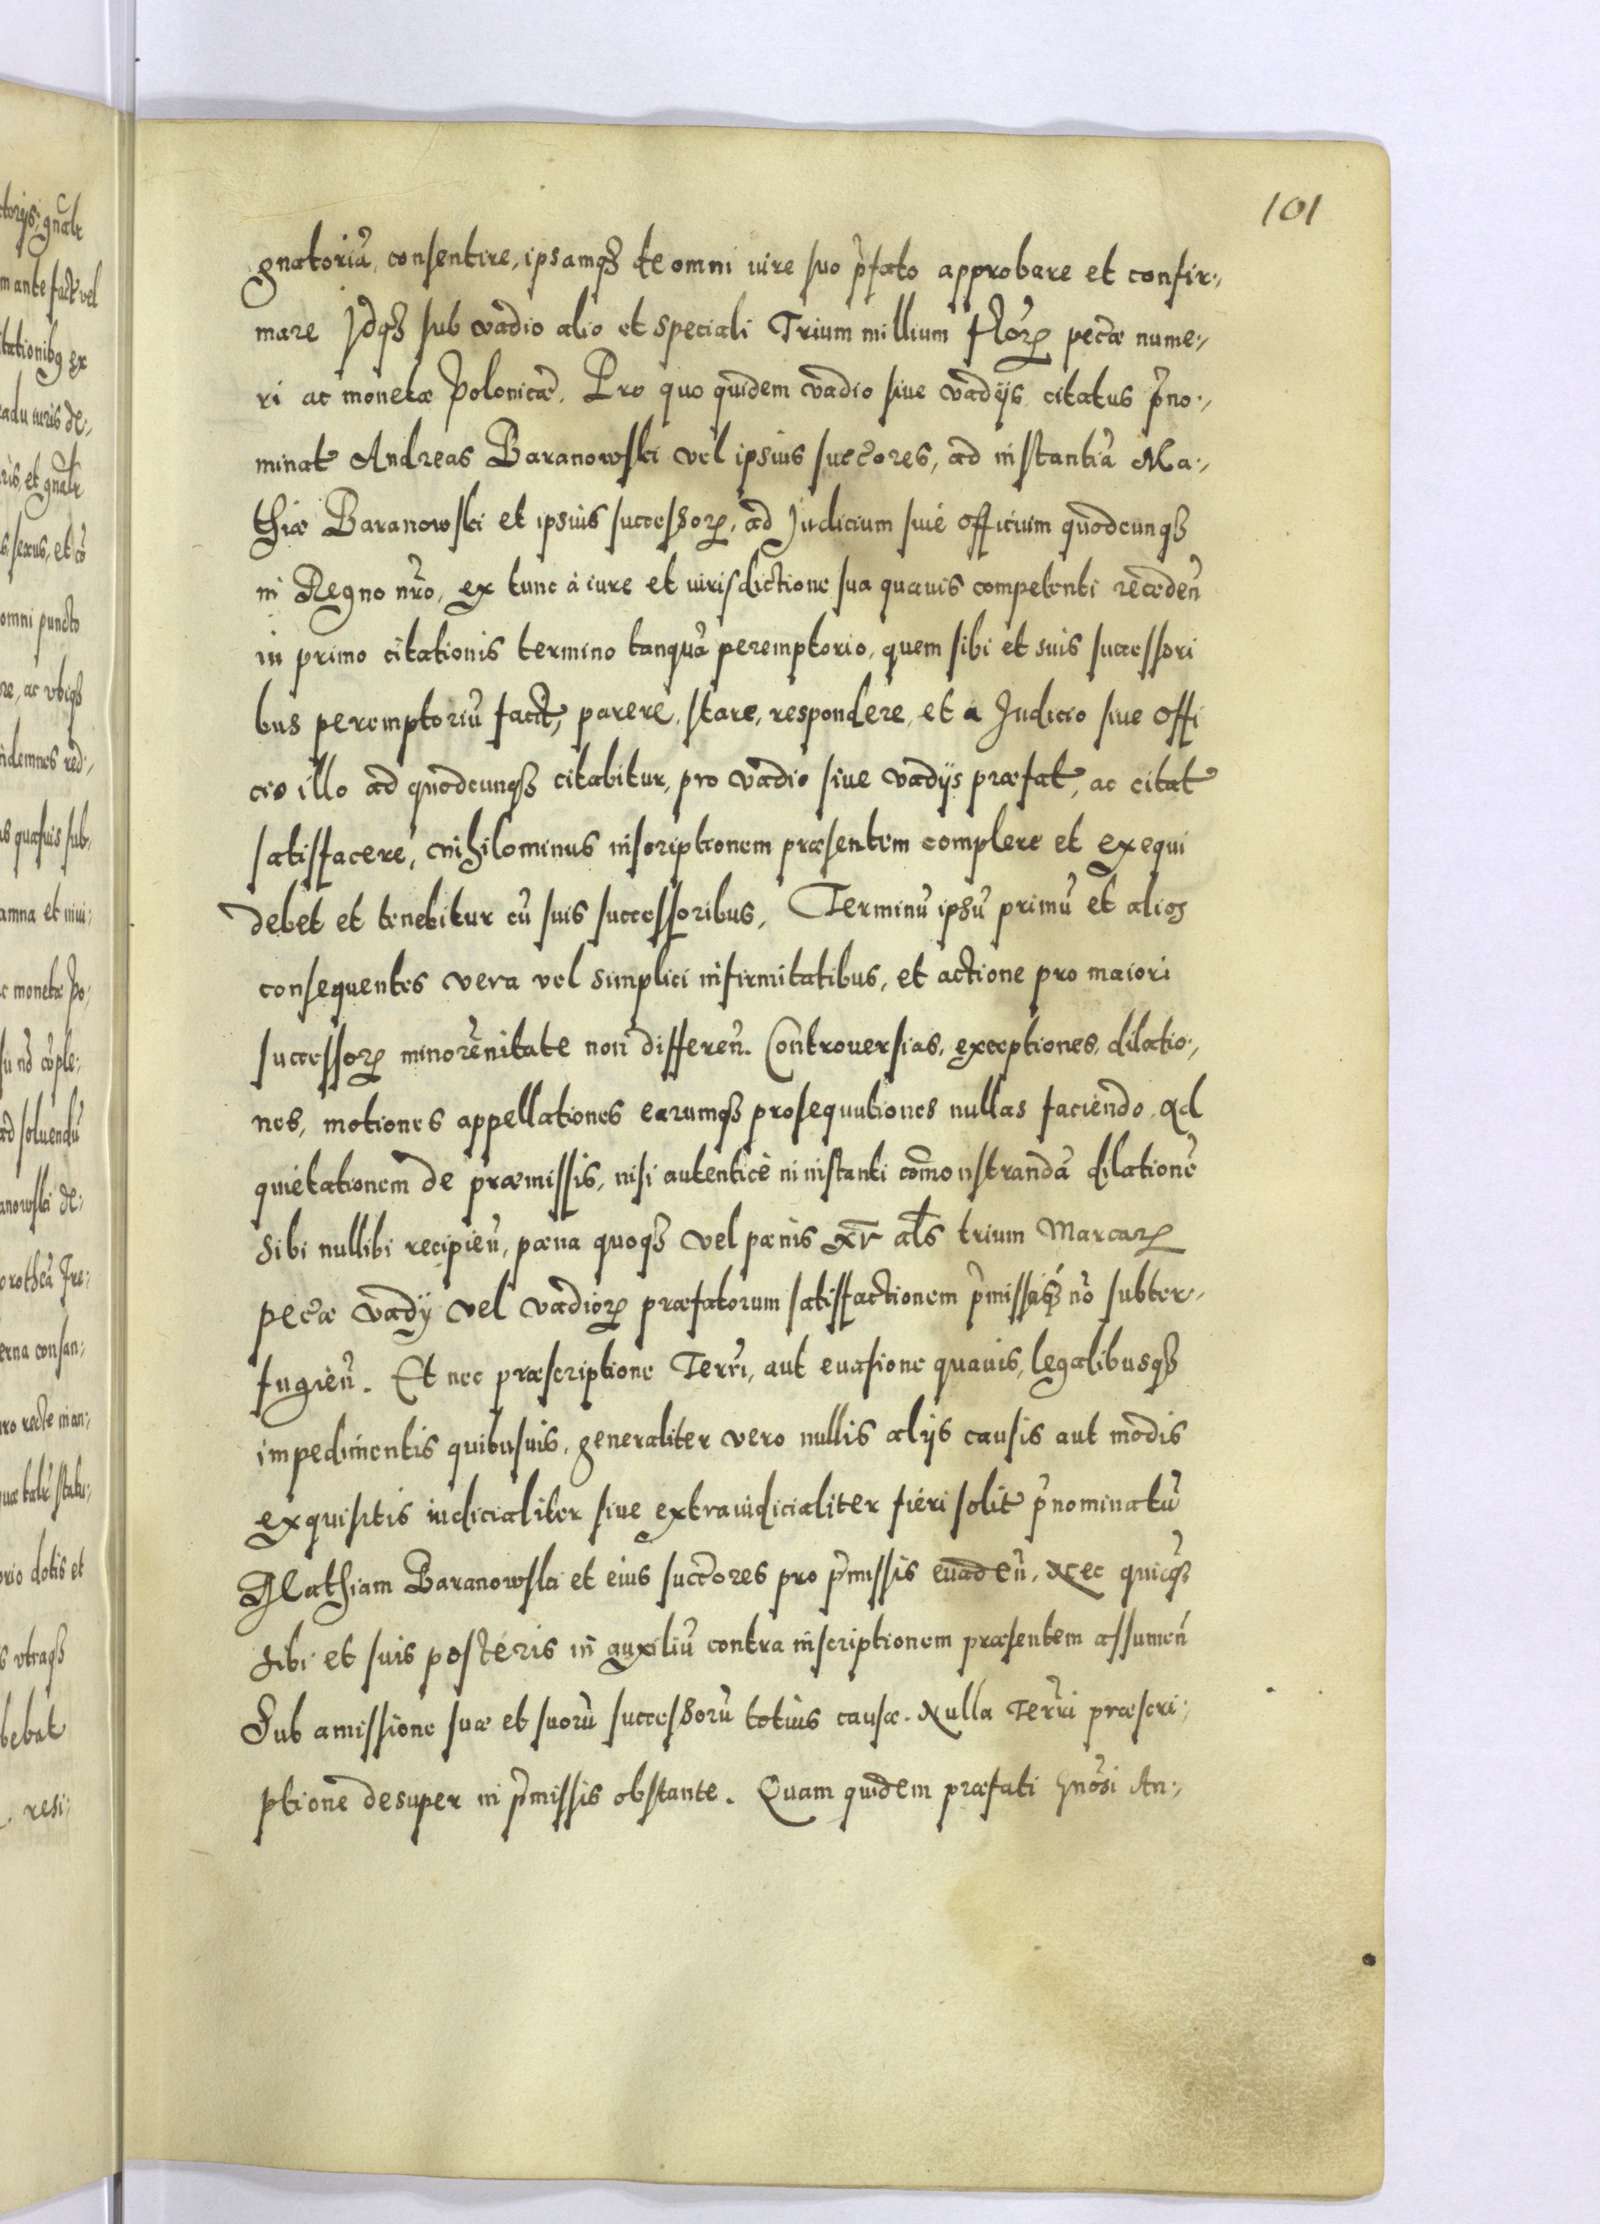 101
gnatoriã, consentire, ipsamqꝫ de omni iure suo p̃fato approbare et confir-
mare Jdqꝫ sub vadio alio et speciali Trium millium florꝝ pecæ nume-
ri ac monetæ Polonicæ. Pro quo quidem vadio siue vadijs citatus p̃no-
minat9 Andreas Baranowski vel ipsius succõres, ad instantiã Ma-
thiæ Baranowski et ipsius successorꝝ, ad Judicium siue officium quodcunqꝫ
in Regno nr̃o, ex tunc à iure et iurisdictione sua quauis competenti recedeñ
in primo citationis termino tanquã peremptorio, quem sibi et suis successori
bus peremptoriũ facit, parere, stare, respondere, et a Judicio siue offi
cio illo ad quodcunqꝫ citabitur, pro vadio siue vadijs præfat9, ac citat9
satisfacere, nihilominus inscriptionem præsentem complere et exequi
debet et tenebitur cũ suis successoribus, Terminũ ipsũ primũ et alios
consequentes vera vel simplici infirmitatibus, et actione pro maiori
successorꝝ minorẽnitate non differeñ. Controuersias, exceptiones, dilatio-
nes, motiones appellationes earumqꝫ prosequutiones nullas faciendo. Ad
quietationem de præmissis, nisi autenticè in instanti com̃onstrandã dilationẽ
sibi nullibi recipieñ, pæna quoqꝫ vel pænis xṽ al̃s trium Marcarꝝ
pecæ vadij vel vadiorꝝ præfatorum satisfactionem p̃missaqꝫ nõ subter-
fugieñ. Et nec præscriptione Terr̃i, aut euasione quauis, legalibusqꝫ
impedimentis quibusuis, generaliter vero nullis alijs causis aut modis
exquisitis iudicialiter siue extraiudicialiter fieri solit9 p̃nominatũ
Mathiam Baranowski et eius succõres pro p̃missis euadeñ. Nec quicqꝫ
sibi et suis posteris in auxiliũ contra inscriptionem præsentem assumeñ
Sub amissione suæ et suorũ successorũ totius causæ. Nulla Terr̃i præscri-
ptione desuper in p̃missis obstante. Quam quidem præfati Gnõsi An-